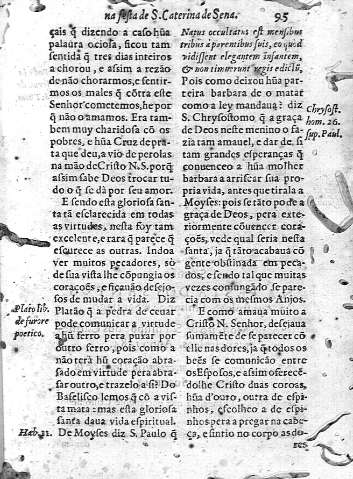 na festa de S. Caterina de Sena.
95
çais q̃ dizendo a caso hũa
palaura ociosa, ficou tam
sentida q̃ tres dias inteiros
a chorou, e assim a rezão
de não chorarmos, e senti-
mos os males q̃ cõtra este
Senhor cometemos, he porq̃
não o amamos. Era tam-
bem muy charidosa cõ os
pobres, e hũa Cruz de pra-
ta que deu, a vio de perolas
na mão de Cristo N. S. porq̃
assim sabe Deos trocar tu-
do o q̃ se dá por seu amor.
E sendo esta gloriosa san-
ta tã esclarecida em todas
as virtudes, nesta foy tam
excellente, e rara q̃ parece q̃
escurece as outras. Indoa
ver muitos pecadores, só
de sua vista lhe cõpungia os
corações, e ficauão desejo-
sos de mudar a vida. Diz
Platão q̃ a pedra de ceuar
pode comunicar a virtude
a hũ ferro pera puxar por
outro ferro, pois como a
não terá hũ coração abra-
sado em virtude pera abra-
sar outro, e trazelo a si? Do
Baselisco lemos q̃ cõ a vis-
ta mata: mas esta gloriosa
santa daua vida espiritual.
De Moyses diz S. Paulo q̃
Plato lib.
de furore
poetico.
Hab. 11.
Natus occultatus est mensibus
tribus à parentibus suis, eo quod
vidissent elegantem infantem,
& non timuerunt regis edictũ,
Pois como deixou hũa par-
teira barbara de o matar
como a ley mandaua? diz
S. Chrysostomo q̃ a graça
de Deos neste menino o fa-
zia tam amauel, e dar de si
tam grandes esperanças q̃
conuenceo a hũa molher
barbara a arriscar sua pro-
pria vida, antes que tirala a
Moyses: pois se tãto pode a
graça de Deos, pera exte-
riormente cõuencer cora-
ções, vede qual seria nesta
santa, ja q̃ tãto acabaua cõ
gente obstinada em peca-
dos, e sendo tal que muitas
vezes confungado se pare-
cia com os mesmos Anjos.
E como amaua muito a
Cristo N. Senhor, desejaua
summamẽte de se parecer cõ
elle nas dores, ja q̃ todos os
bẽs se comunicão entre
os Esposos, e assim oferecẽ-
dolhe Cristo duas coroas,
hũa d'ouro, outra de espi-
nhos, escolheo a de espi-
nhos pera a pregar na cabe-
ça, e sintio no corpo as do-
res
Chrysost.
hom. 26.
sup. Paul.